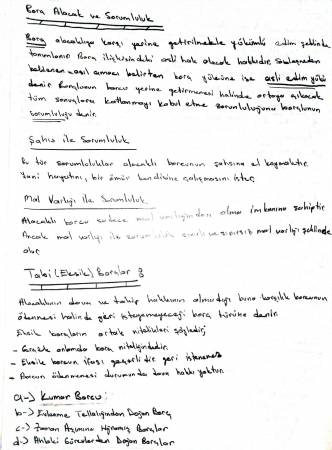 Borç Alacak ve Sorumluluk
Borç alacaklıya karşı yerine getirilmekle yükümlü edim şeklinde
tanımlanır. Borç ilişkisindeki asli hak alacak hakkıdır. Sözleşmeden
beklenen asıl amacı belirten borç yüküne ise asli edim yükü
denir. Borçlunun borcu yerine getirmemesi halinde ortaya çıkacak
tüm sonuçlara katlanmayı kabul etme sorunluluğuna borçlunun
sorumluluğu denir.
Şahıs ile Sorumluluk
Bu tür sorumluluklar alacaklı borcunun şahsına el koymaktır.
Yani hayatını, bir ömür kendisine çalışmasını ister.
Mal Varlığı ile Sorumluluk
Alacaklı borcu sadece mal varlığından alma imkanına sahiptir
Ancak mal varlığı ile sorumluluk sınırlı ve sınırsız mal varlığı şeklinde
olur.
Tabi (Eksik) Borçlar
Alacaklının dava ve takip hakkının olmadığı buna karşılık borcunun
ödenmesi halinde geri isteyemeyeceği borç türüne denir.
Eksik borçların ortak nitelikleri şöyledir;
- Gerçek anlamda borç niteliğindedir.
- Eksik borcun ifası geçerlidir geri istenemez
- Borcun ödenmemesi durumunda dava hakkı yoktur.
a-) Kumar Borcu:
b-) Evlenme Tellallığından Doğan Borç
c-) Zaman Aşımına Uğramış Borçlar
d-) Ahlaki Görevlerden Doğan Borçlar